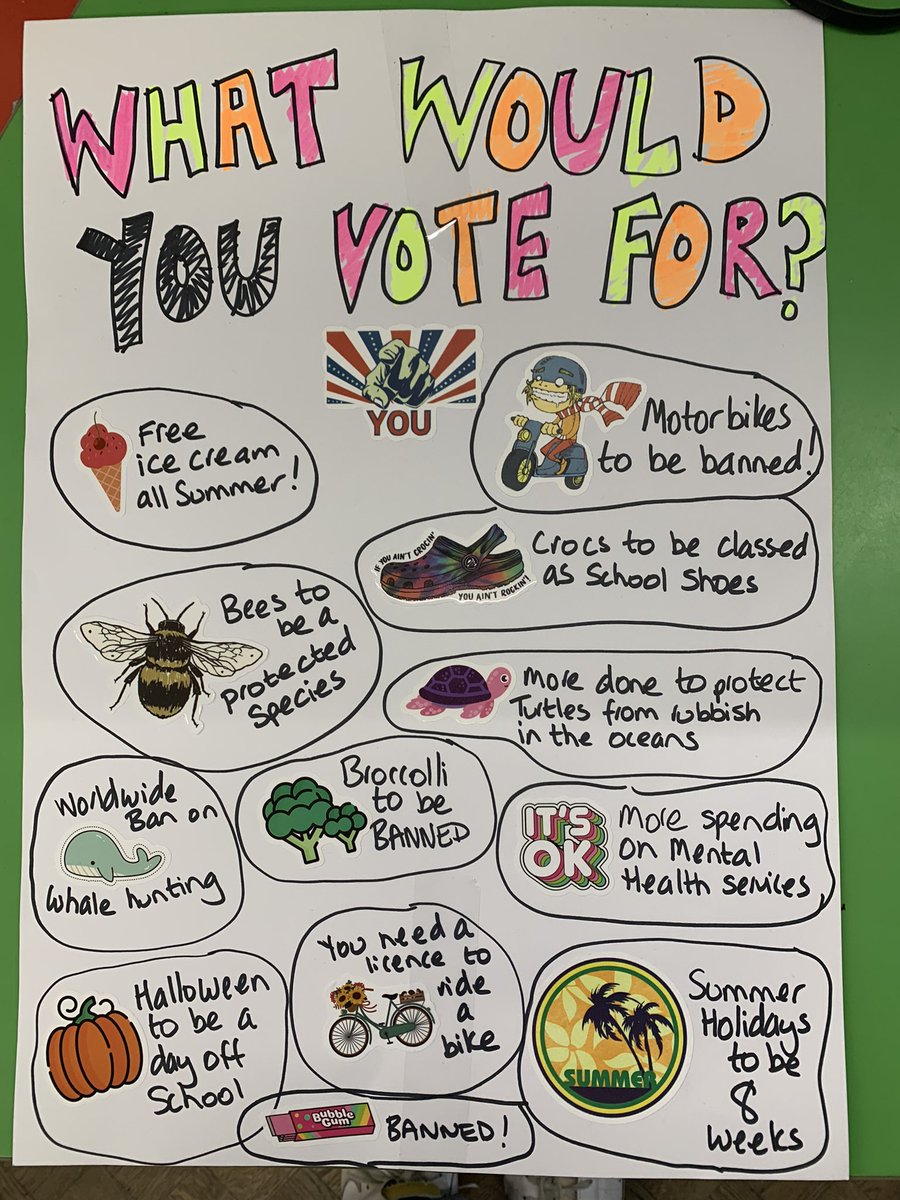 WHAT WOULD
YOU VOTE FOR?
YOU
Free
ice cream
all Summer!
Motorbikes
to be banned!
IF YOU AIN'T CROCIN'
YOU AIN'T ROCKIN'!
Crocs to be classed
as School Shoes
Bees to
be a
protected
Species
More done to protect
Turtles from rubbish
in the oceans
Worldwide
Ban on
Whale hunting
Broccolli
to be
BANNED
IT'S
OK
More spending
on Mental
Health Services
Halloween
to be a
day off
School
You need a
licence to
ride
a
bike
SUMMER
Summer
Holidays
to be
8
weeks
Bubble
Gum
BANNED!